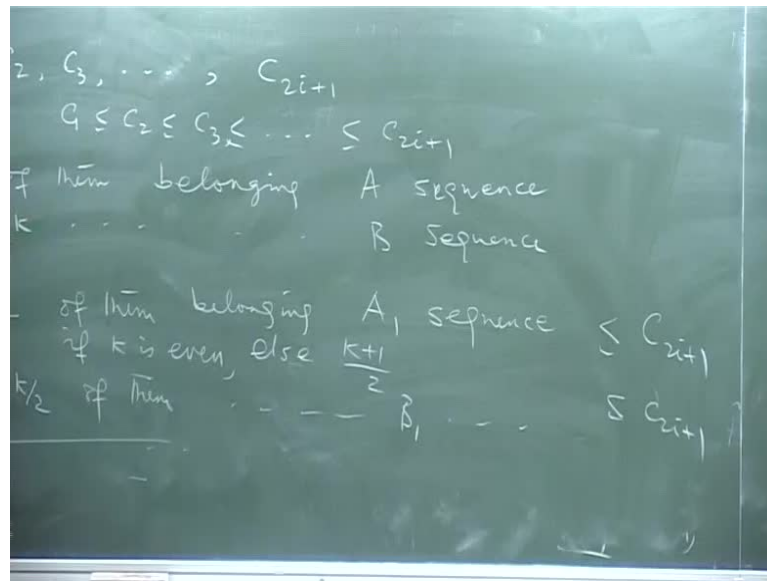 2, C_3, ..., C_{2i+1}
C_1 ≤ C_2 ≤ C_3 ≤ ... ≤ C_{2i+1}
of them belonging A sequence
k ... . . B sequence
of them belonging A_1 sequence ≤ C_{2i+1}
if k is even, else \frac{k+1}{2}
k/2 of them - - - — B_1 - - - ≤ C_{2i+1}